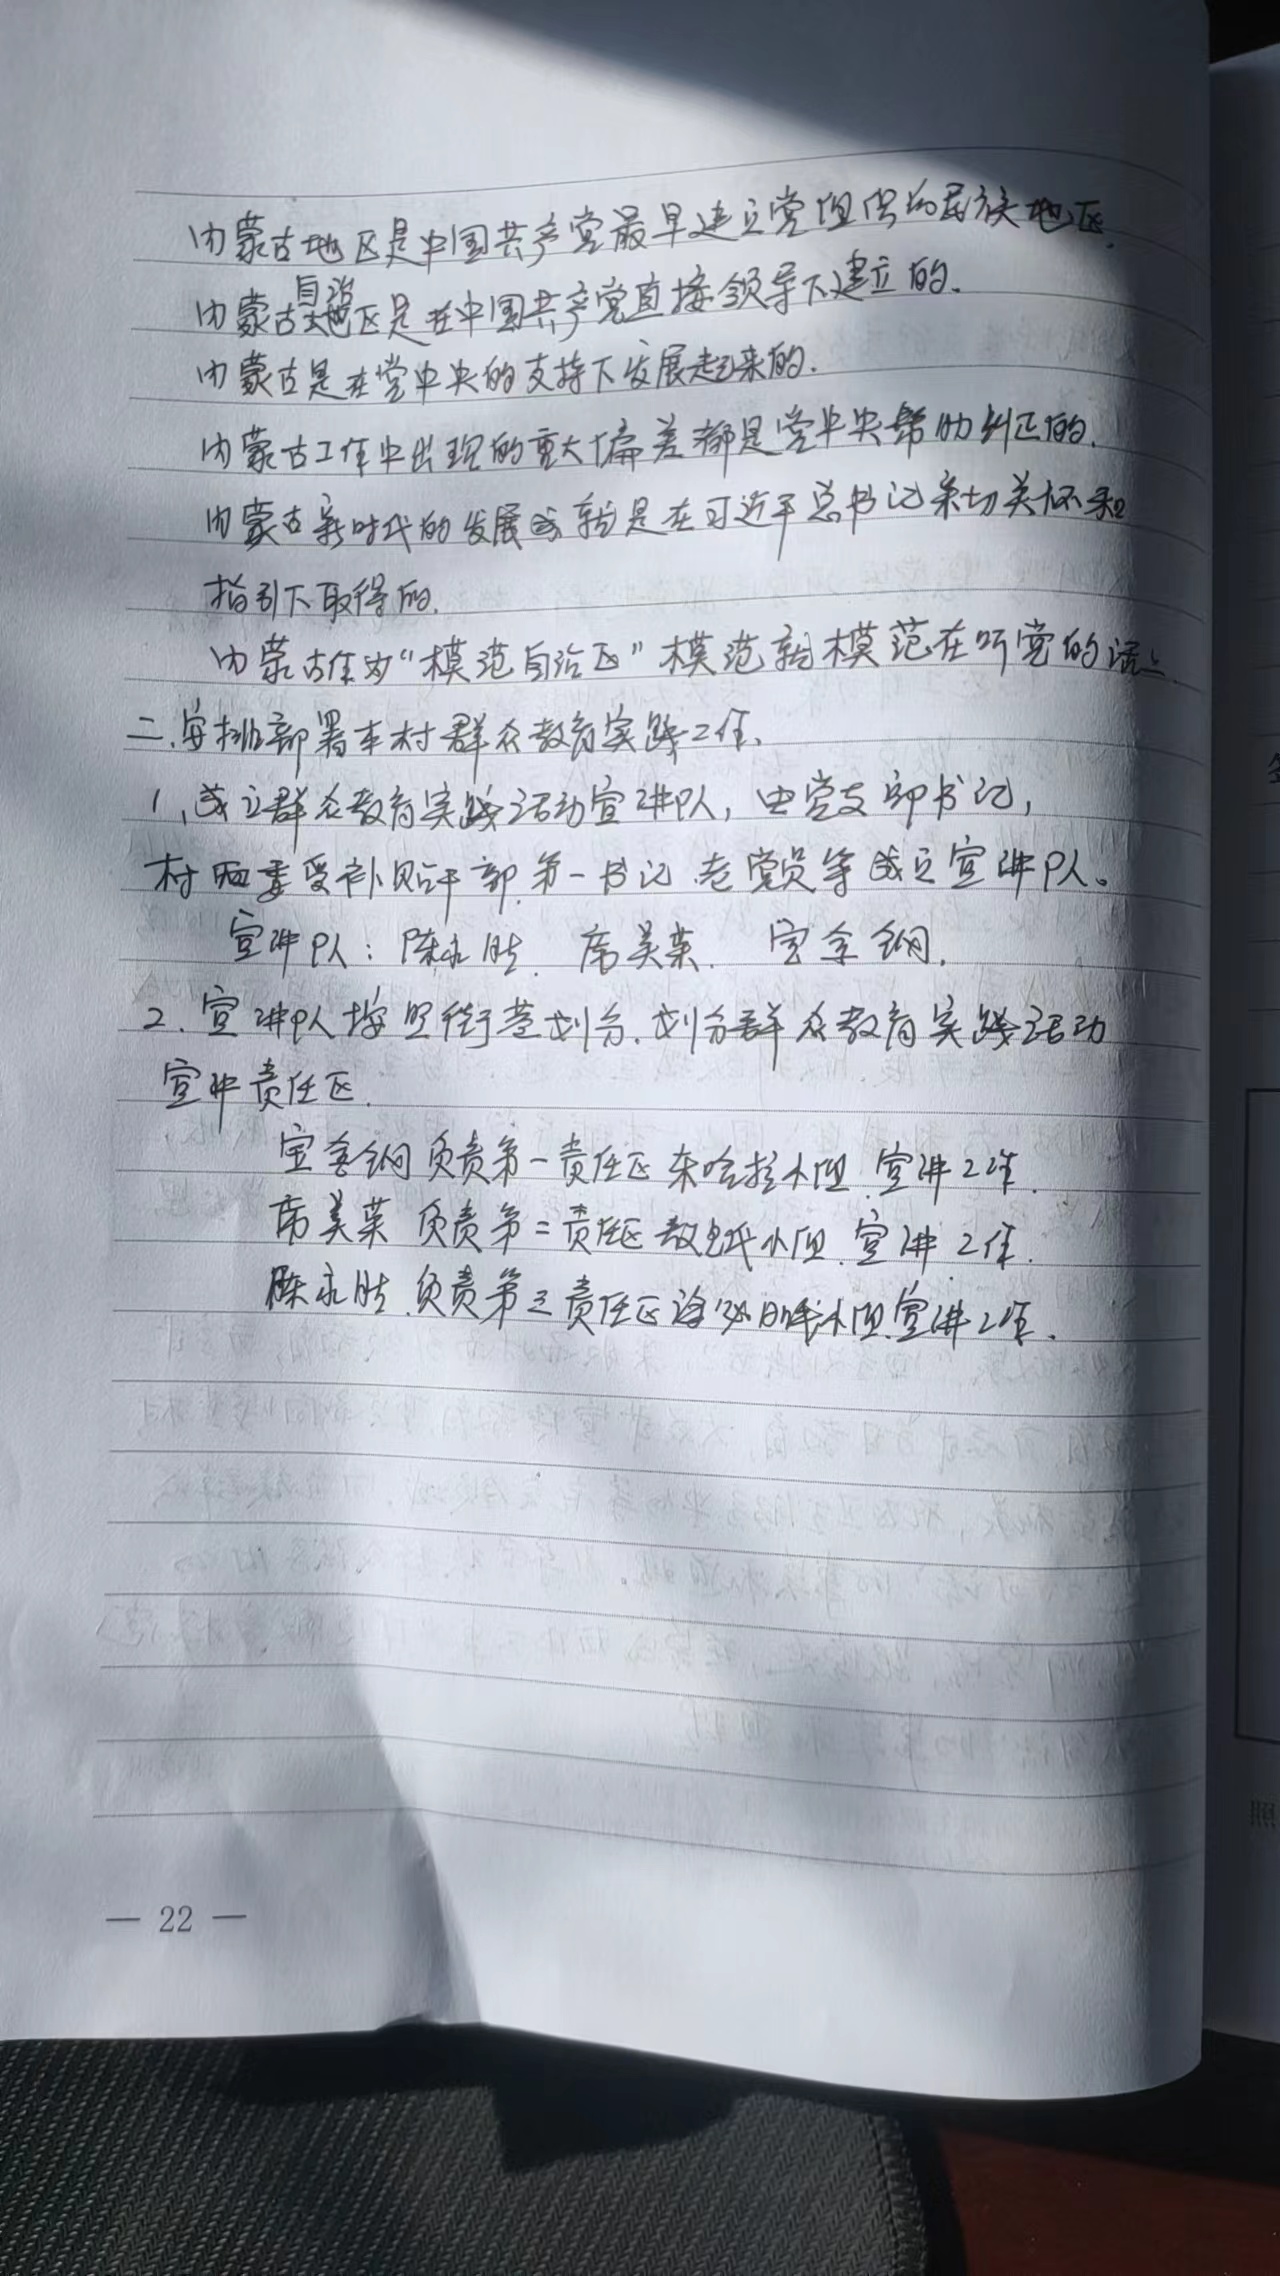 内蒙古地区是中国共产党最早建立党组织的民族地区.
内蒙古自治区是在中国共产党直接领导下建立的.
内蒙古是在党中央的支持下发展起来的.
内蒙古工作中出现的重大偏差都是党中央帮助纠正的.
内蒙古新时代的发展成就是在习近平总书记亲切关怀和
指引下取得的.
内蒙古作为“模范自治区”模范就模范在听党的话上.
二、安排部署本村群众教育实践工作.
1、成立群众教育实践活动宣讲队, 由党支部书记,
村两委受补贴干部.第一书记.老党员等成立宣讲队。
宣讲队: 陈永胜. 席美荣. 宝金钢.
2. 宣讲队按照街巷划分.划分群众教育实践活动
宣讲责任区.
宝金钢负责第一责任区东哈拉小组.宣讲工作.
席美荣负责第二责任区敖包小组.宣讲工作.
陈永胜.负责第三责任区小组.宣讲工作.
— 22 —